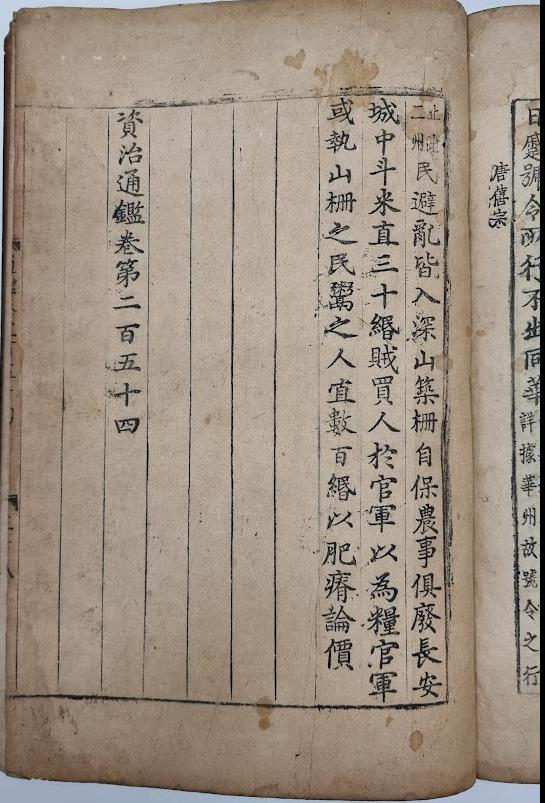 日蹙號令所行不出同華詳據華州故號令之行
唐僖宗
止此二州民避亂皆入深山築柵自保農事俱廢長安
城中斗米直三十緡賊買人於官軍以為糧官軍
或執山柵之民鬻之人直數百緡以肥瘠論價
資治通鑑卷第二百五十四